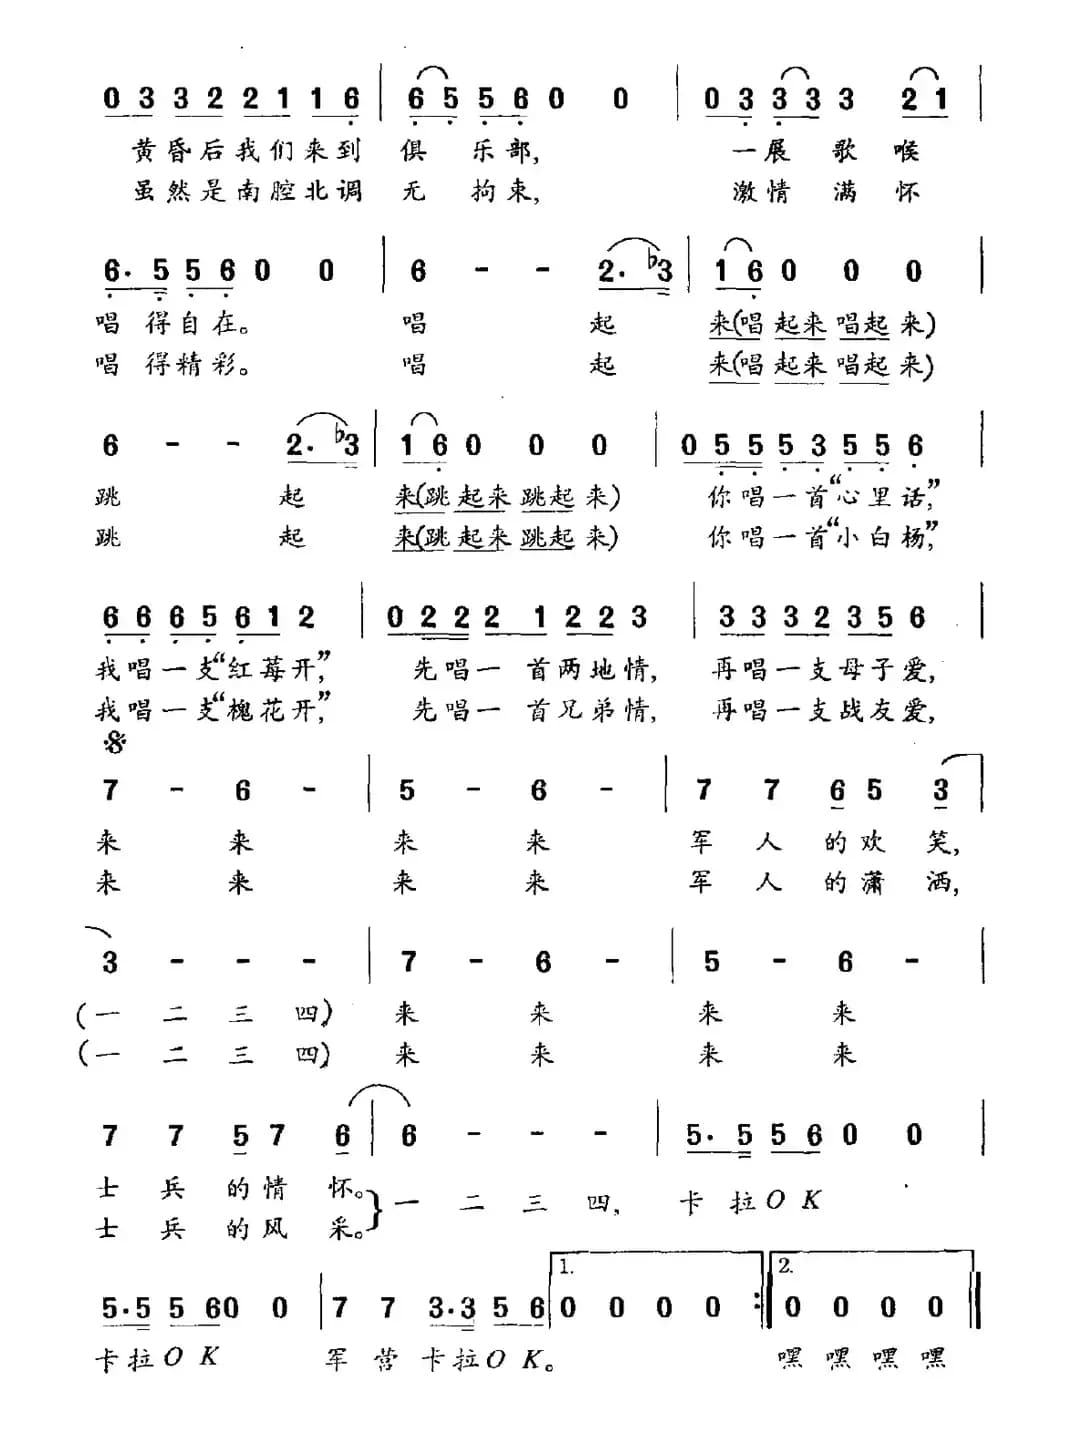 0 3 3 2 2 1 1 6 | 6 5 5 6 0 0 | 0 3 3 3 3 2 1 |
黄昏后我们来到 俱 乐部, 一展 歌 喉
虽然是南腔北调 无 拘束, 激情 满 怀
6. 5 5 6 0 0 | 6 - - 2. ♭3 | 1 6 0 0 0 |
唱 得自在。 唱 起 来(唱起来唱起来)
唱 得精彩。 唱 起 来(唱起来唱起来)
6 - - 2. ♭3 | 1 6 0 0 0 | 0 5 5 5 3 5 5 6
跳 起 来(跳起来跳起来) 你唱一首“心里话,”
跳 起 来(跳起来跳起来) 你唱一首“小白杨,”
6 6 6 5 6 1 2 | 0 2 2 2 1 2 2 3 | 3 3 3 2 3 5 6 |
我唱一支“红莓开,” 先唱一 首两地情, 再唱一支母子爱,
我唱一支“槐花开,” 先唱一 首兄弟情, 再唱一支战友爱,
𝄋
7 - 6 - | 5 - 6 - | 7 7 6 5 3 |
来 来 来 来 军 人 的欢 笑,
来 来 来 来 军 人 的潇 洒,
3 - - - | 7 - 6 - | 5 - 6 - |
(一 二 三 四) 来 来 来 来
(一 二 三 四) 来 来 来 来
7 7 5 7 6 | 6 - - - | 5. 5 5 6 0 0 |
士 兵 的情 怀。} 一 二 三 四, 卡 拉OK
士 兵 的风 采。
1. 2.
5. 5 5 6 0 0 | 7 7 3. 3 5 6 | 0 0 0 0 :| 0 0 0 0 |
卡拉OK 军 营 卡拉OK。 嘿 嘿 嘿 嘿